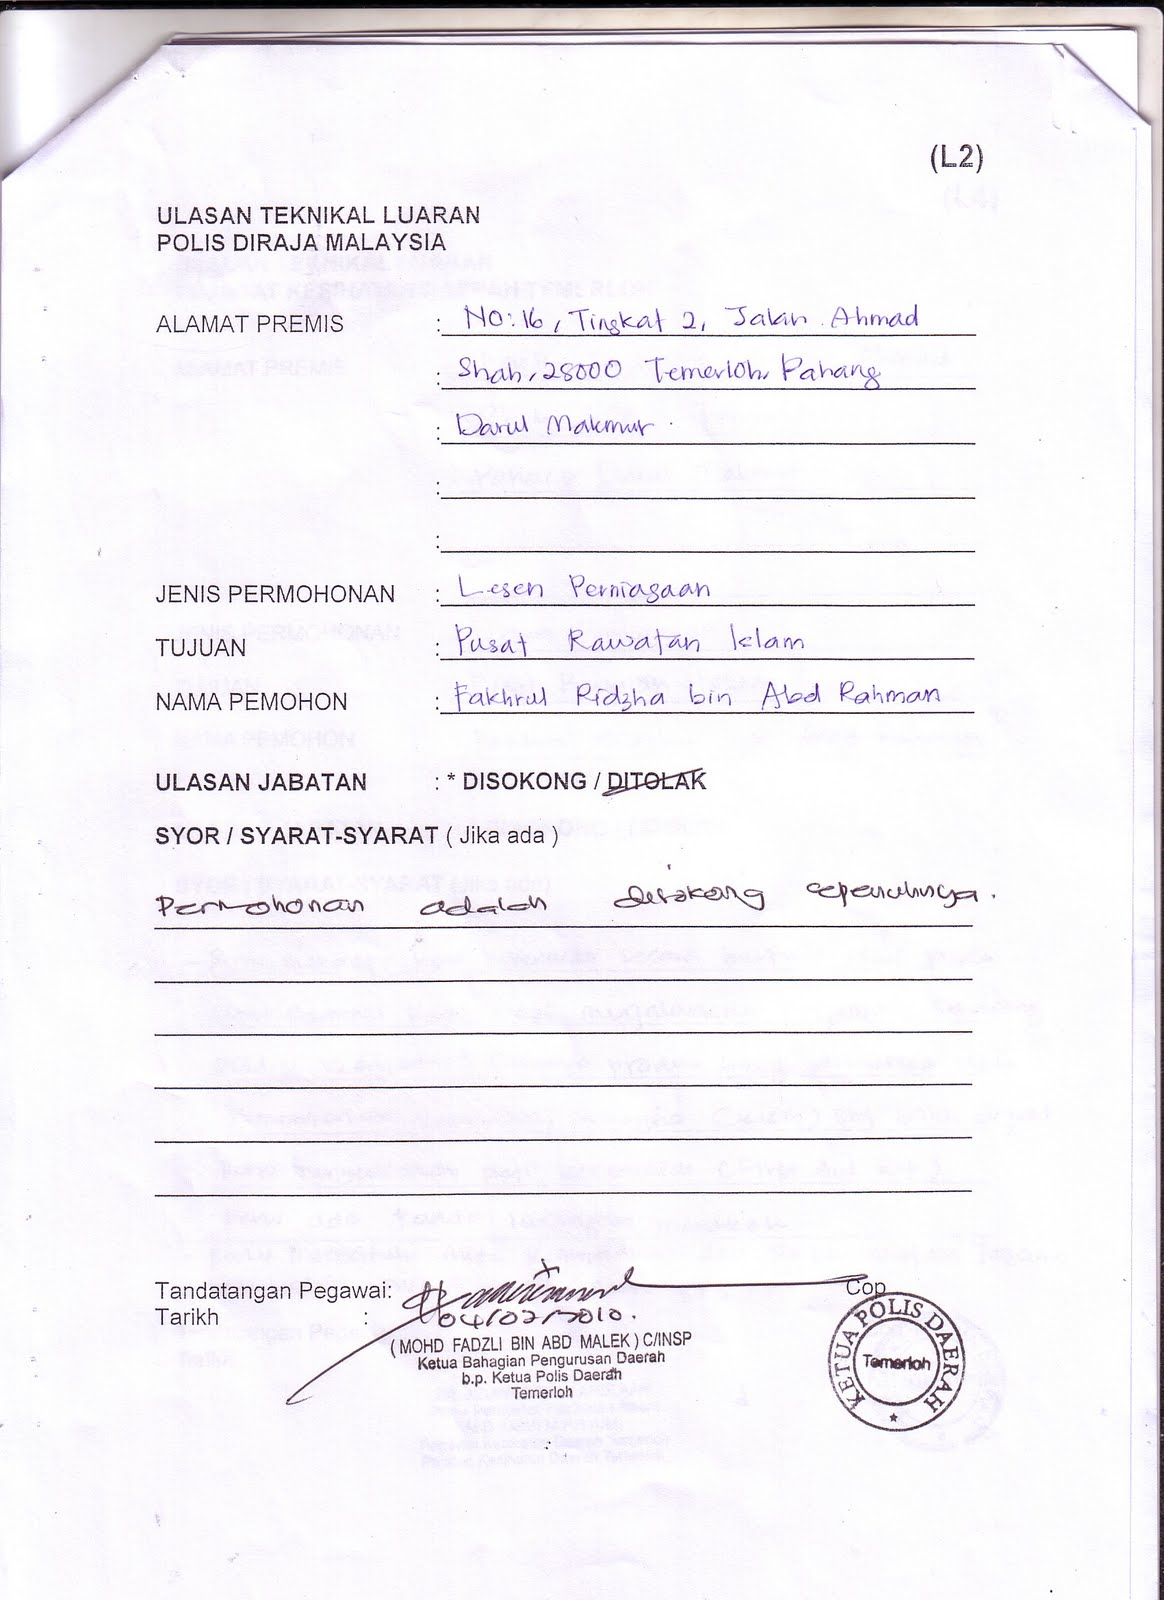 (L2)
ULASAN TEKNIKAL LUARAN
POLIS DIRAJA MALAYSIA
ALAMAT PREMIS : NO: 16, Tingkat 2, Jalan Ahmad
: Shah, 28000 Temerloh, Pahang
: Darul Makmur.
:
:
JENIS PERMOHONAN : Lesen Perniagaan
TUJUAN : Pusat Rawatan Islam
NAMA PEMOHON : Fakhrul Ridzha bin Abd Rahman
ULASAN JABATAN : * DISOKONG / DITOLAK
SYOR / SYARAT-SYARAT ( Jika ada )
Permohonan adalah disokong sepenuhnya.
Tandatangan Pegawai:
Cop
Tarikh : 04/02/2010.
( MOHD FADZLI BIN ABD MALEK ) C/INSP
Ketua Bahagian Pengurusan Daerah
b.p. Ketua Polis Daerah
Temerloh
KETUA POLIS DAERAH
Temerloh